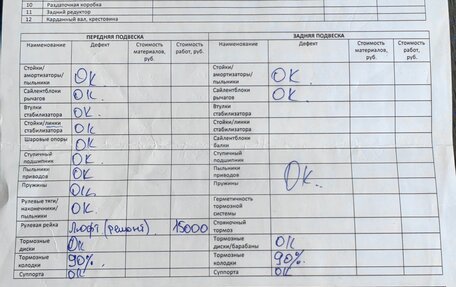 10 Раздаточная коробка
11 Задний редуктор
12 Карданный вал, крестовина
ПЕРЕДНЯЯ ПОДВЕСКА ЗАДНЯЯ ПОДВЕСКА
Наименование Дефект Стоимость материалов, руб. Стоимость работ, руб. Наименование Дефект Стоимость материалов, руб. Стоимость работ, руб.
Стойки/амортизаторы/пыльники ОК Стойки/амортизаторы/пыльники ОК
Сайлентблоки рычагов ОК. Сайлентблоки рычагов ОК
Втулки стабилизатора ОК. Втулки стабилизатора
Стойки/линки стабилизатора ОК Стойки/линки стабилизатора
Шаровые опоры ОК Сайлентблоки балки
Ступичный подшипник ОК Ступичный подшипник
Пыльники приводов ОК Пыльники приводов ОК.
Пружины ОК. Пружины
Рулевые тяги/наконечники/пыльники ОК. Герметичность тормозной системы
Рулевая рейка Люфт (ремонт). 15000 Стояночный тормоз
Тормозные диски ОК Тормозные диски/барабаны ОК
Тормозные колодки 90%. Тормозные колодки 90%.
Суппорта ОК Суппорта ОК